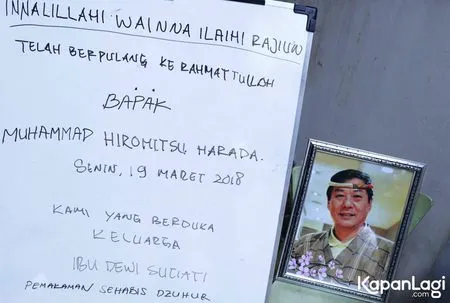 INNALILLAHI WAINNA ILAIHI RAJIUN
TELAH BERPULANG KE RAHMATTULLOH
BAPAK
MUHAMMAD HIROMITSU HARADA.
SENIN, 19 MARET 2018
KAMI YANG BERDUKA
KELUARGA
IBU DEWI SUCIATI
PEMAKAMAN SEHABIS DZUHUR
KapanLagi.com